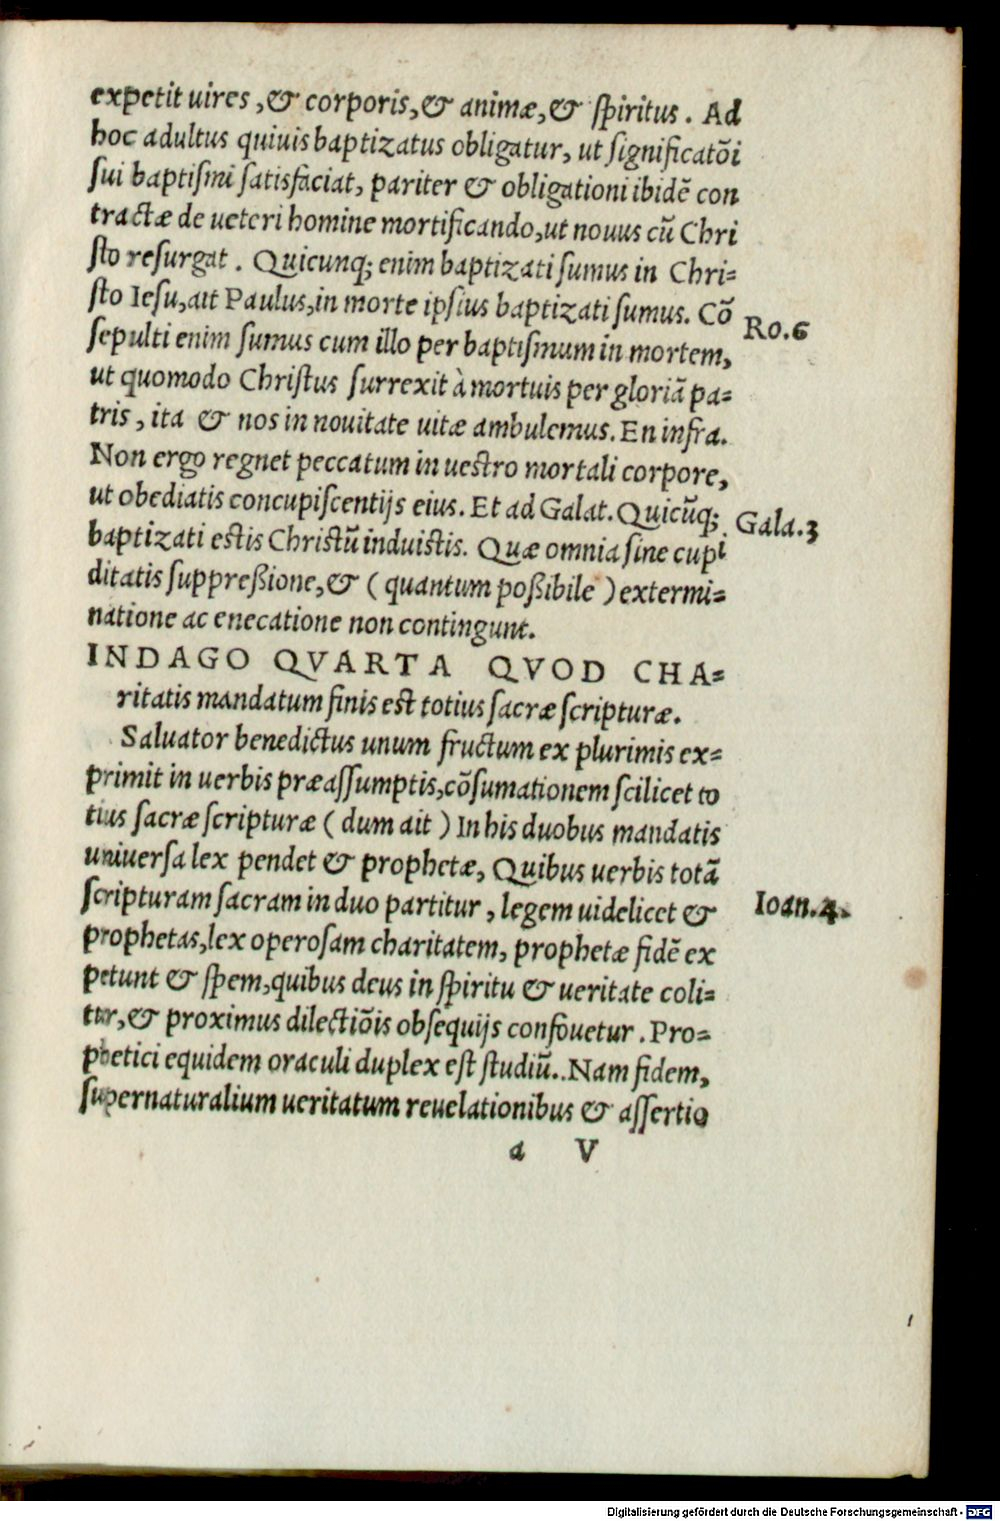 expetit uires, & corporis, & animæ, & ſpiritus. Ad
hoc adultus quiuis baptizatus obligatur, ut ſignificatōi
ſui baptiſmi ſatisfaciat, pariter & obligationi ibidē con
tractæ de ueteri homine mortificando, ut nouus cū Chri
ſto reſurgat. Quicunq; enim baptizati ſumus in Chri=
ſto Ieſu, ait Paulus, in morte ipſius baptizati ſumus. Cō
Ro.6
ſepulti enim ſumus cum illo per baptiſmum in mortem,
ut quomodo Chriſtus ſurrexit à mortuis per gloriā pa=
tris, ita & nos in nouitate uitæ ambulemus. En infra.
Non ergo regnet peccatum in ueſtro mortali corpore,
ut obediatis concupiſcentijs eius. Et ad Galat. Quicūq;
Gala.3
baptizati eſtis Chriſtū induiſtis. Quæ omnia ſine cupi
ditatis ſuppreßione, & (quantum poßibile) extermi=
natione ac enecatione non contingunt.
INDAGO QVARTA QVOD CHA=
ritatis mandatum finis eſt totius ſacræ ſcripturæ.
Saluator benedictus unum fructum ex plurimis ex=
primit in uerbis præaſſumptis, cōſumationem ſcilicet to
tius ſacræ ſcripturæ (dum ait) In his duobus mandatis
uniuerſa lex pendet & prophetæ, Quibus uerbis totā
ſcripturam ſacram in duo partitur, legem uidelicet &
Ioan.4.
prophetas, lex operoſam charitatem, prophetæ fidē ex
petunt & ſpem, quibus deus in ſpiritu & ueritate coli=
tur, & proximus dilectiōis obſequijs confouetur. Pro=
phetici equidem oraculi duplex eſt ſtudiū.. Nam fidem,
ſupernaturalium ueritatum reuelationibus & aſſertio
a V
Digitalisierung gefördert durch die Deutsche Forschungsgemeinschaft - DFG